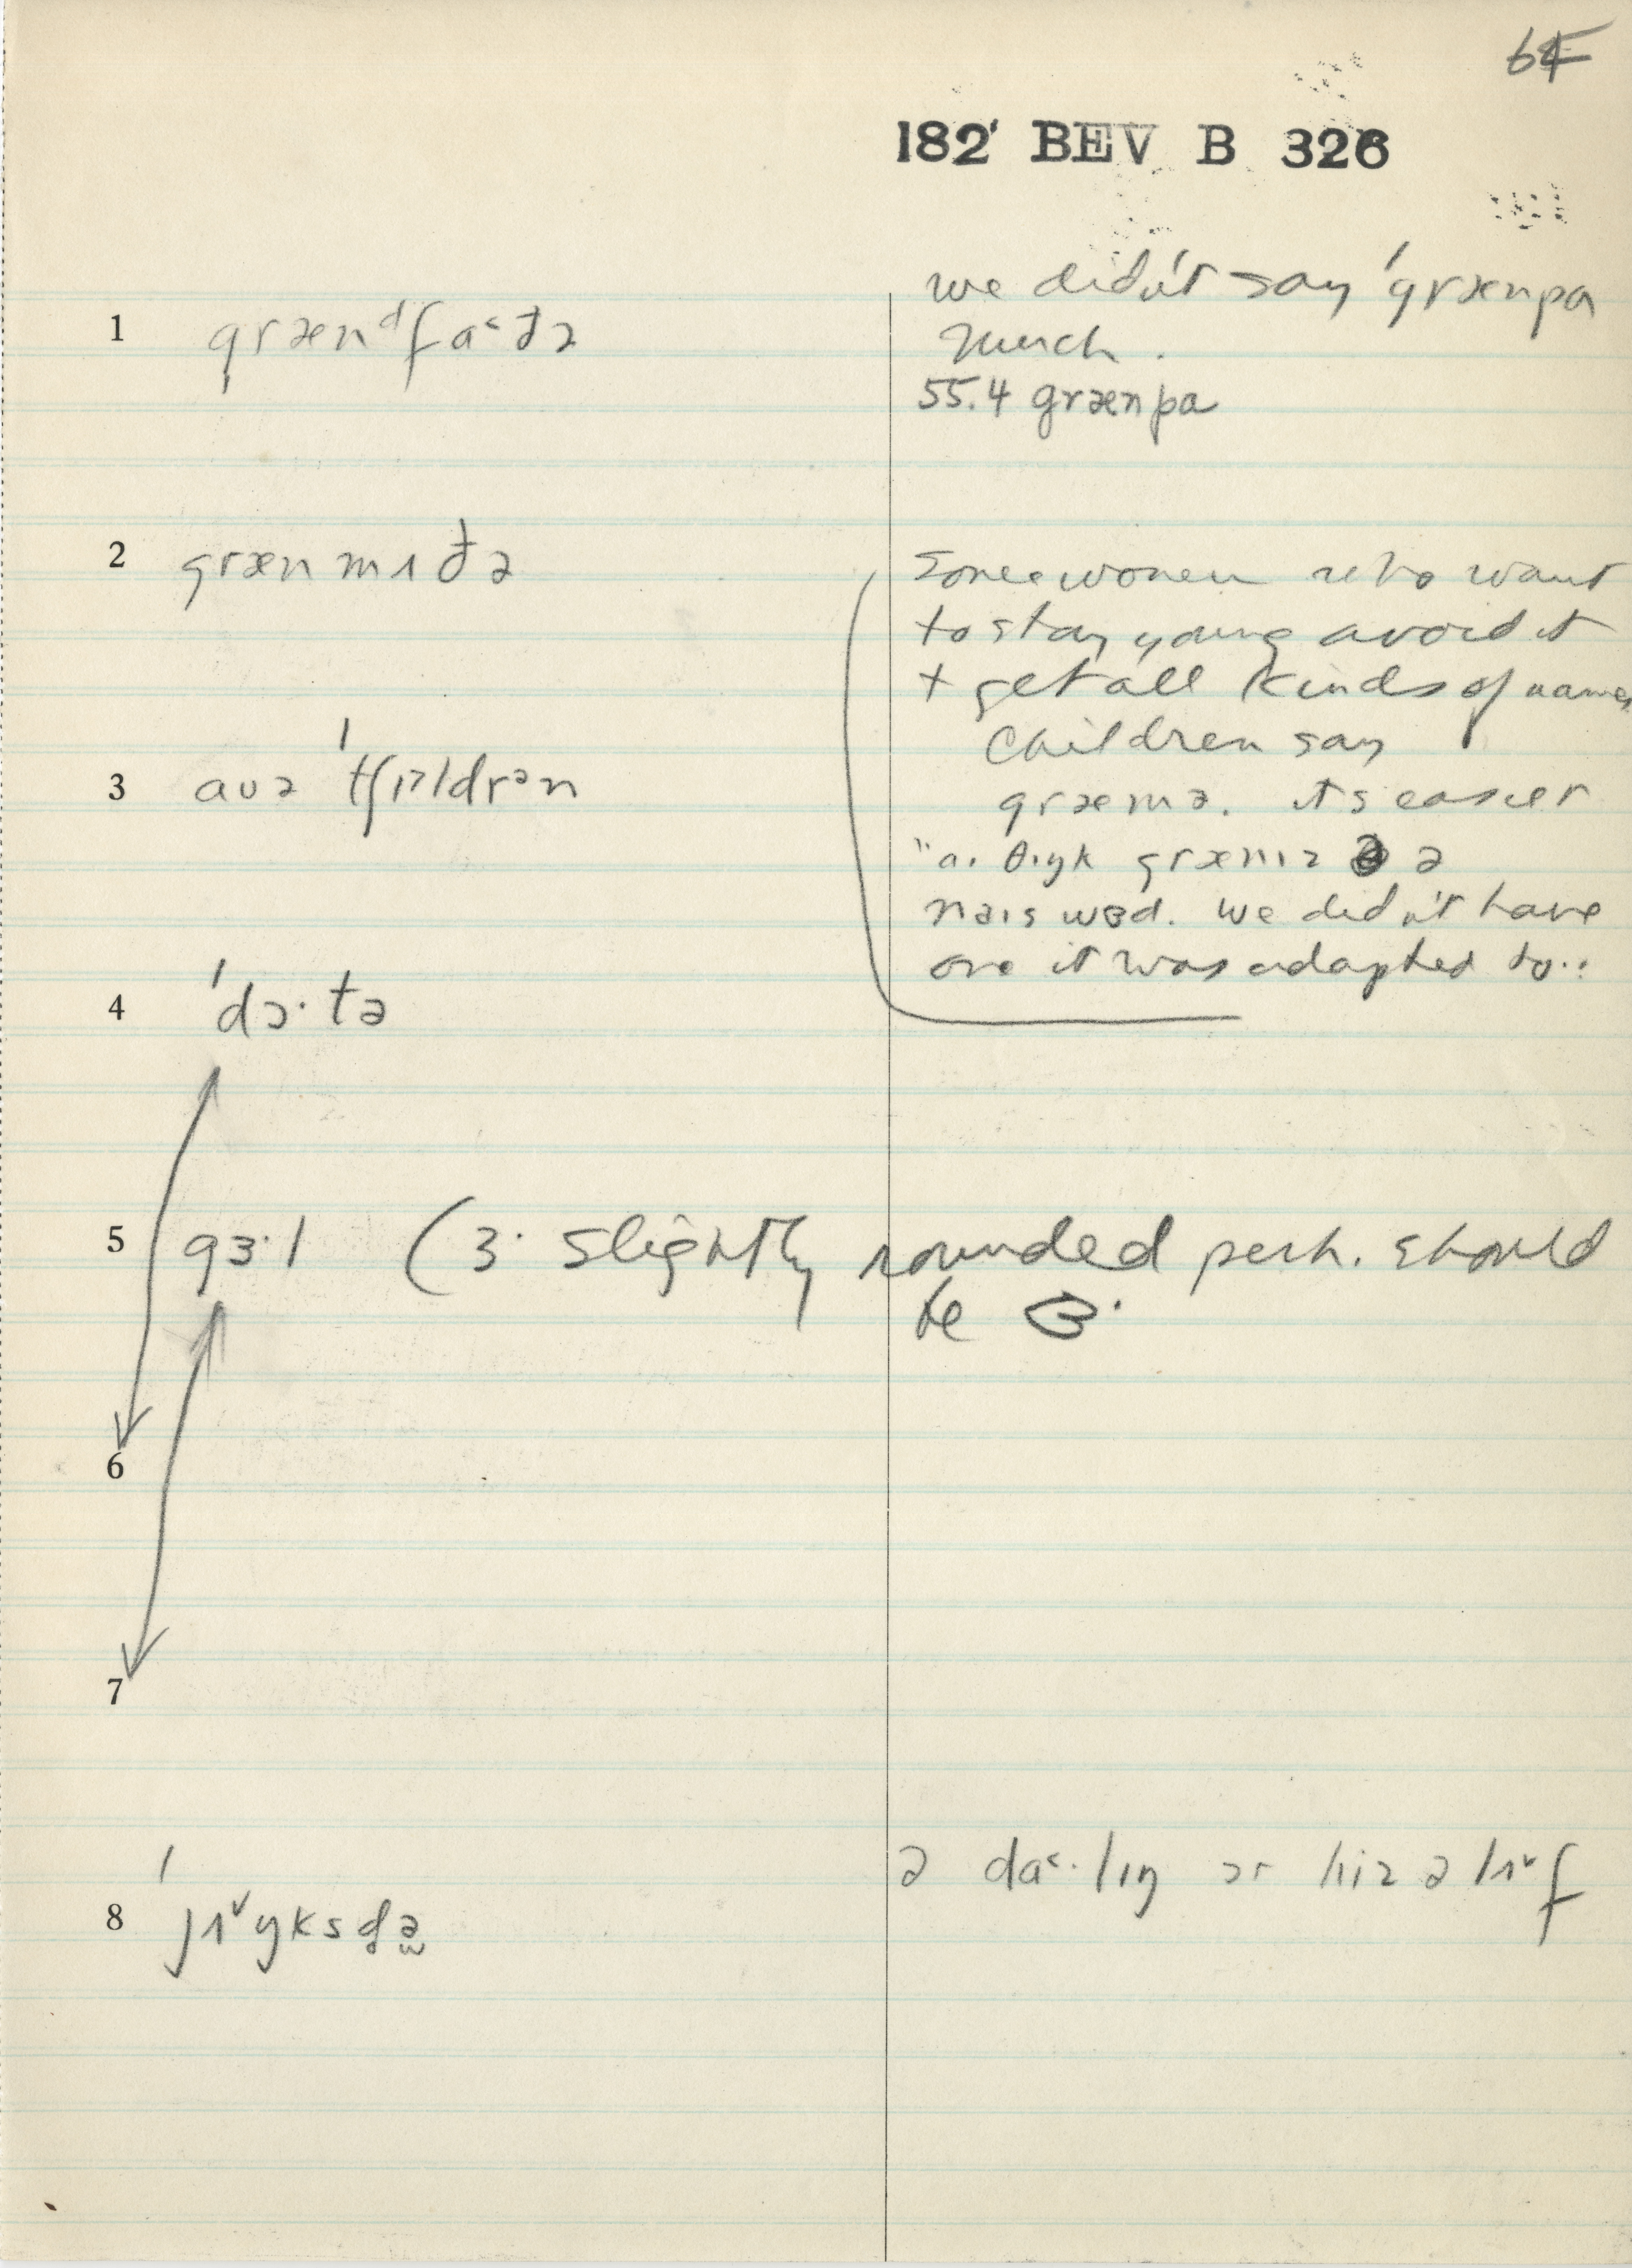 64
182 BEV B 326
1 græn ᵈfa˂ðə
we didn't say 'grænpa
much.
55.4 grænpa
2 græn mʌðə
Some women who want
to stay young avoid it
+ get all kinds of names
Children say
græmə. its easier
3 auə 'tʃɪᵊldrᵊn
"aɪ θɪŋk græmɪz ə
naɪs wɜd. We didn't have
one it was adapted to..
4 'dɔ·tə
5 gɜ·l (ɜ· slightly rounded perh. should
be ɞ·
6
7
ə da˂·lɪŋ ɔr hiz ə lʌ˅f
8 'jʌ˅ŋksdə